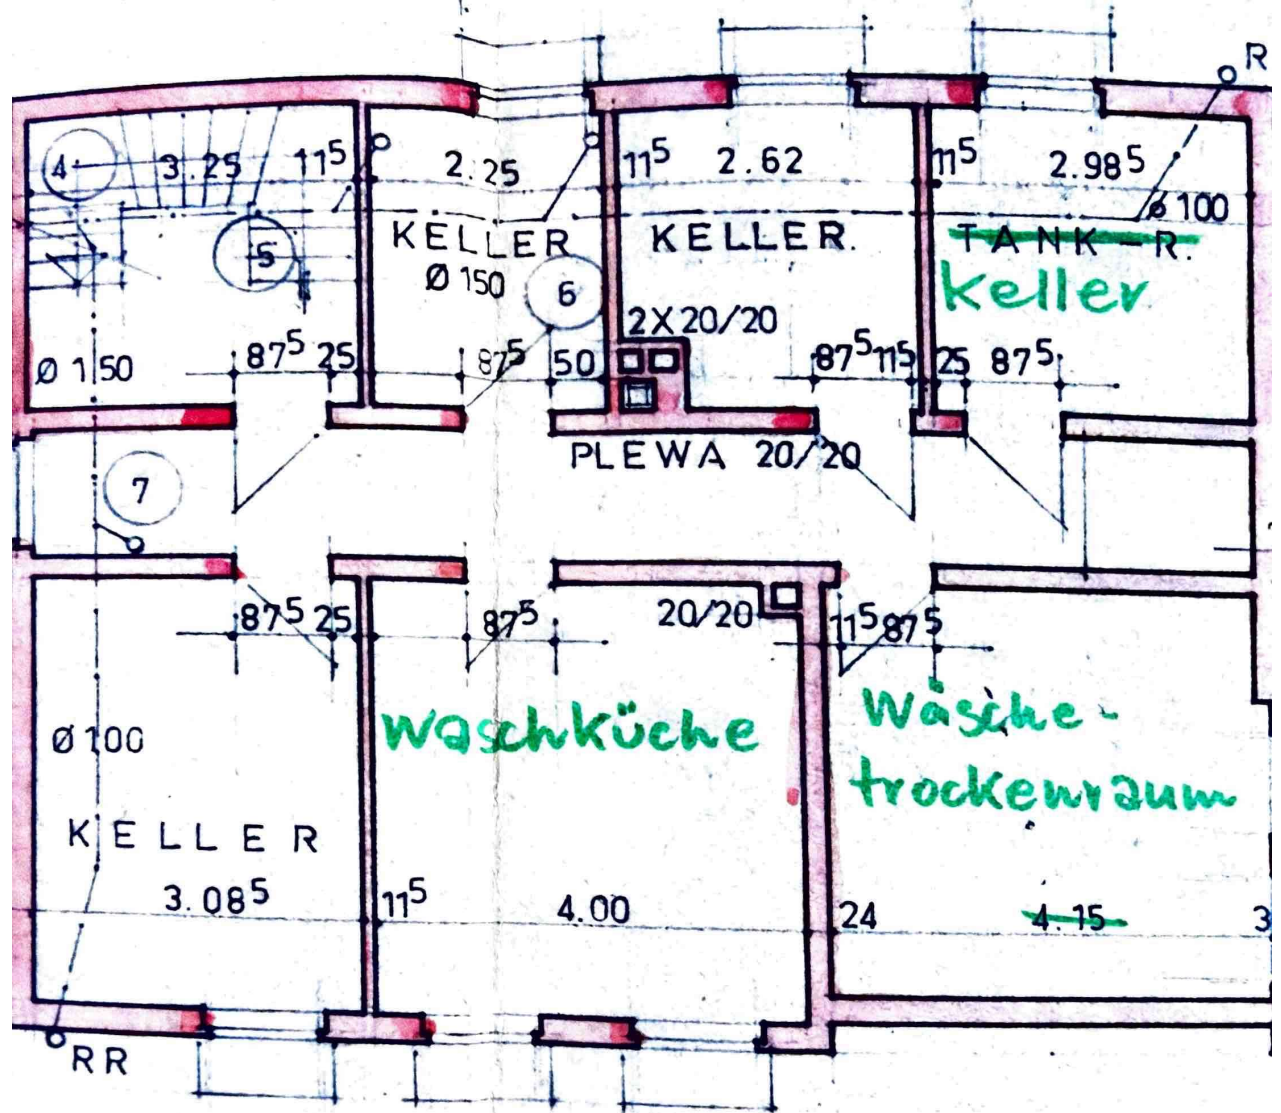 R
4
3.25
11⁵
2.25
11⁵
2.62
11⁵
2.98⁵
Ø 100
KELLER
KELLER.
TANK-R.
Keller
5
Ø 150
6
2X20/20
Ø 150
87⁵ 25
87⁵ 50
87⁵ 11⁵
25 87⁵
PLEWA 20/20
7
87⁵ 25
87⁵
20/20
11⁵ 87⁵
Ø 100
Waschküche
Wäsche-
trockenraum
KELLER
3.08⁵
11⁵
4.00
24
4.15
3
RR